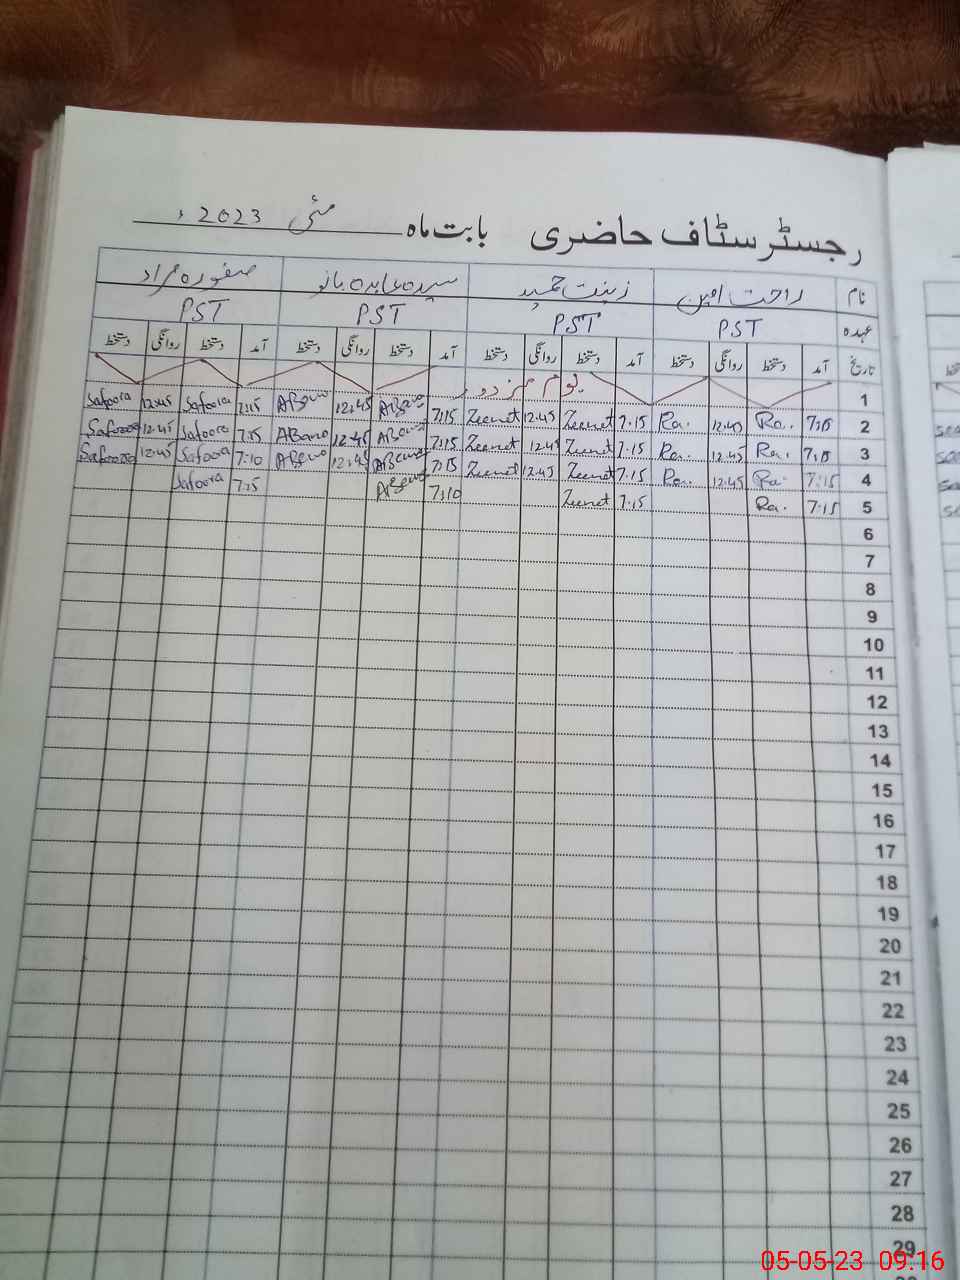 رجسٹر سٹاف حاضری بابت ماہ مئی 2023ء
نام راحت امین زینت حمید سیدہ عابدہ بانو صفورہ مراد
عہدہ PST PST PST PST
تاریخ آمد دستخط روانگی دستخط آمد دستخط روانگی دستخط آمد دستخط روانگی دستخط آمد دستخط روانگی دستخط
1 یوم مزدور
2 7:15 Ra. 12:45 Ra. 7:15 Zeenat 12:45 Zeenat 7:15 ABano 12:45 ABano 7:15 Safoora 12:45 Safoora
3 7:15 Ra. 12:45 Ra. 7:15 Zeenat 12:45 Zeenat 7:15 ABano 12:45 ABano 7:15 Safoora 12:45 Safoora
4 7:15 Ra. 12:45 Ra. 7:15 Zeenat 12:45 Zeenat 7:15 ABano 12:45 ABano 7:10 Safoora 12:45 Safoora
5 7:15 Ra. 7:15 Zeenat 7:10 ABano 7:15 Safoora
6
7
8
9
10
11
12
13
14
15
16
17
18
19
20
21
22
23
24
25
26
27
28
29
05-05-23 09:16